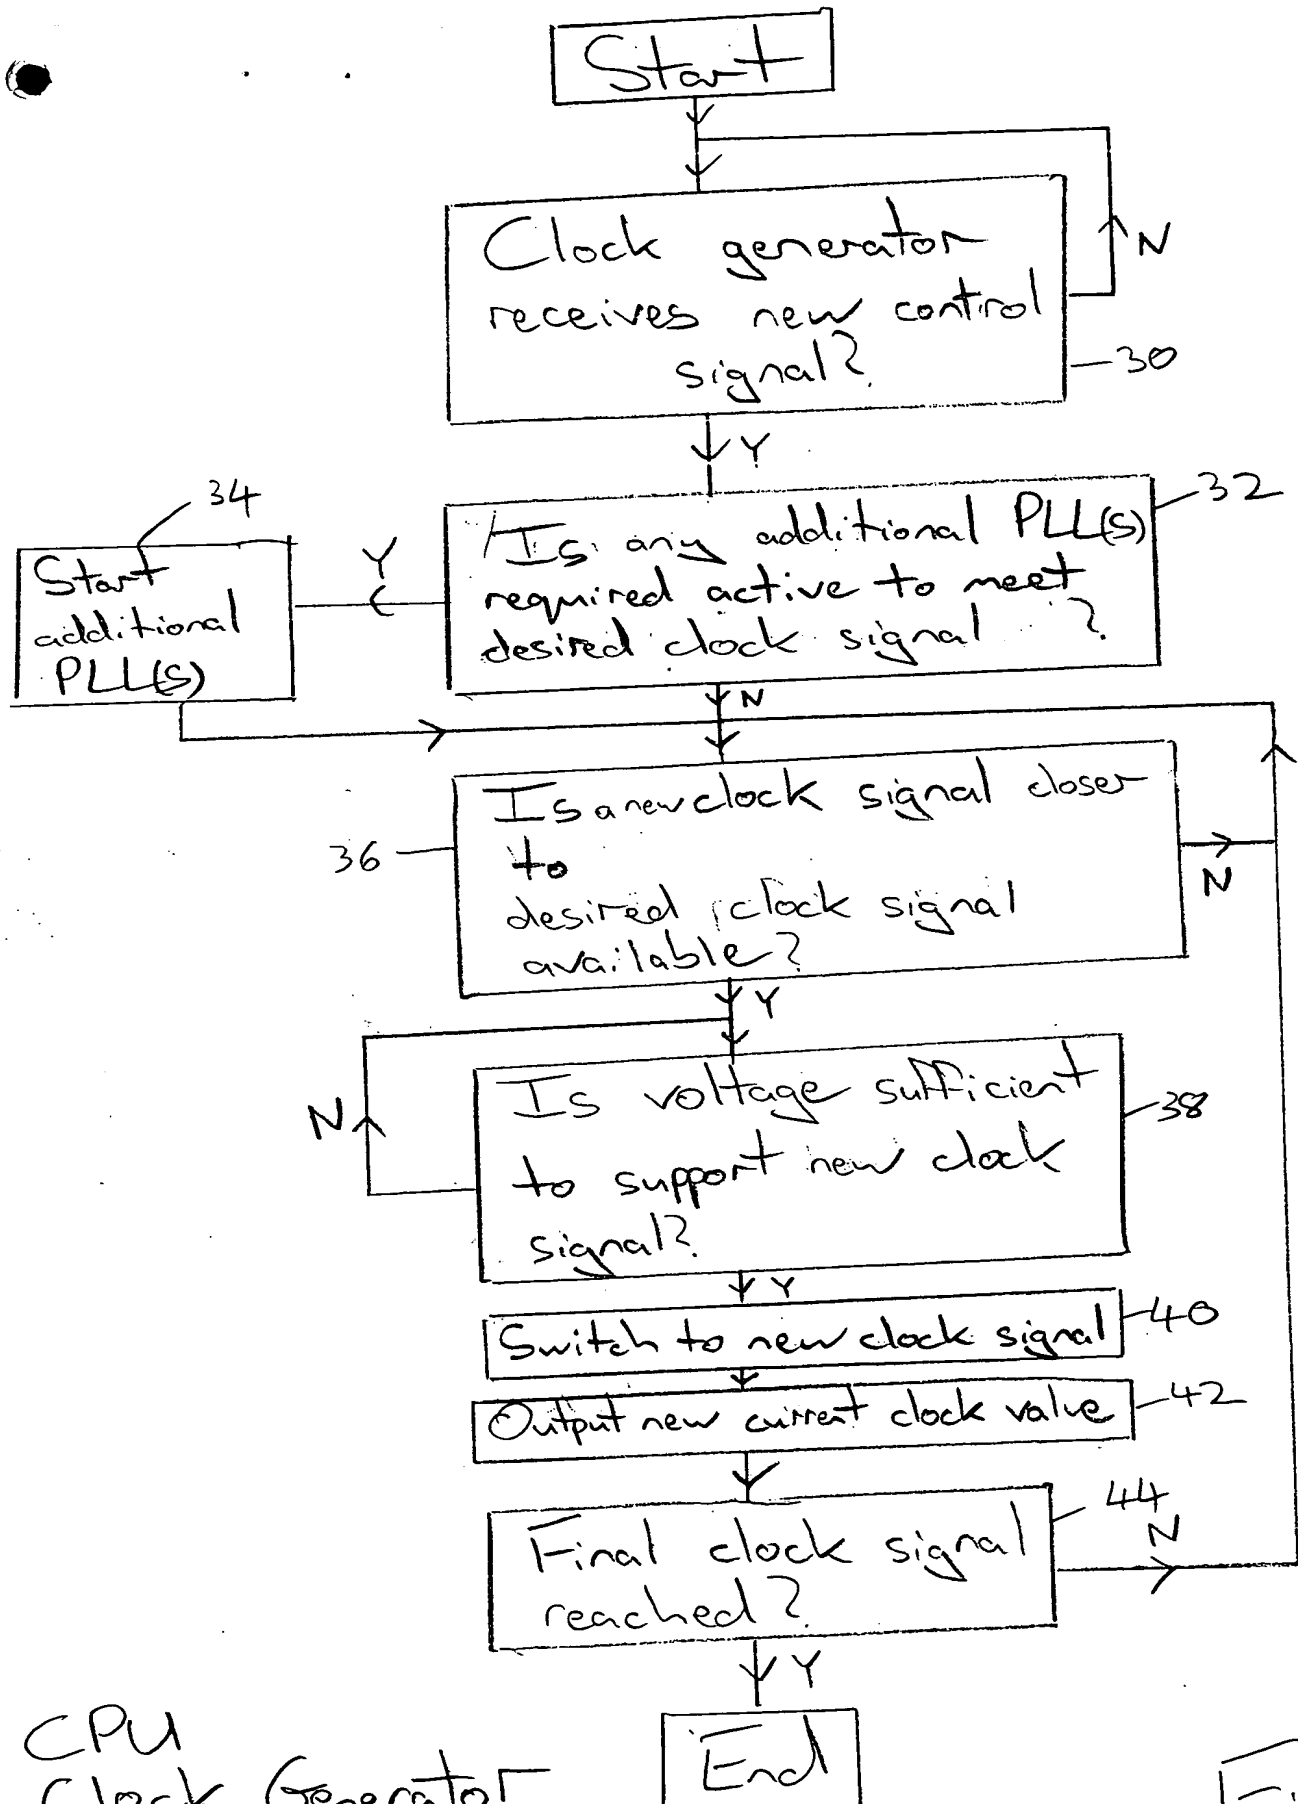 Start
Clock generator
receives new control
signal?
N
30
Y
34
32
Start
additional
PLL(s)
Y
Is any additional PLL(s)
required active to meet
desired clock signal ?
N
Is a new clock signal closer
to
desired clock signal
available?
36
N
Y
Is voltage sufficient
to support new clock
signal?
N
38
Y
Switch to new clock signal
40
Output new current clock value
42
Final clock signal
reached?
44
N
Y
End
CPU
Clock Generator